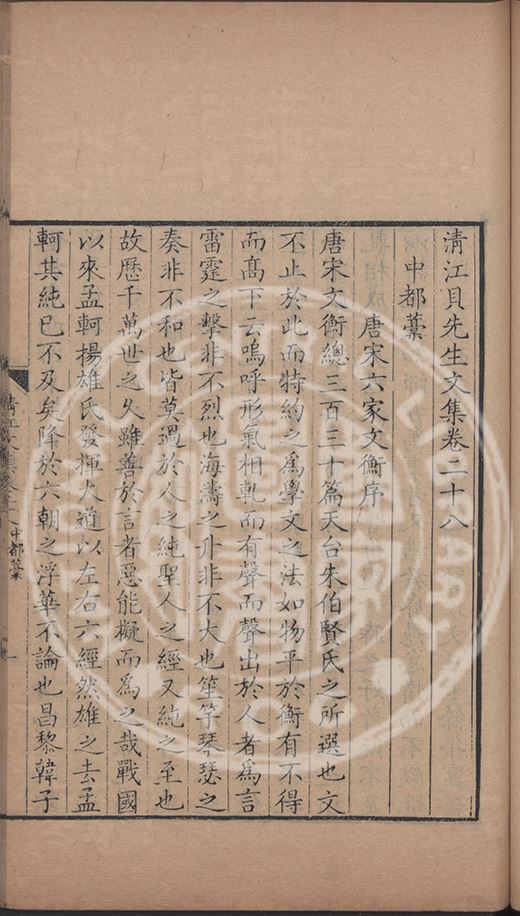 清江貝先生文集卷二十八
中都藁
唐宋六家文衡序
唐宋文衡總三百三十篇天台朱伯賢氏之所選也文
不止於此而特約之爲學文之法如物平於衡有不得
而高下云嗚呼形氣相軋而有聲而聲出於人者爲言
雷霆之擊非不烈也海濤之升非不大也笙竽琴瑟之
奏非不和也皆莫過於人之純聖人之經又純之至也
故歷千萬世之久雖善於言者惡能擬而爲之哉戰國
以來孟軻揚雄氏發揮大道以左右六經然雄之去孟
軻其純已不及矣降於六朝之浮華不論也昌黎韓子
中都藁